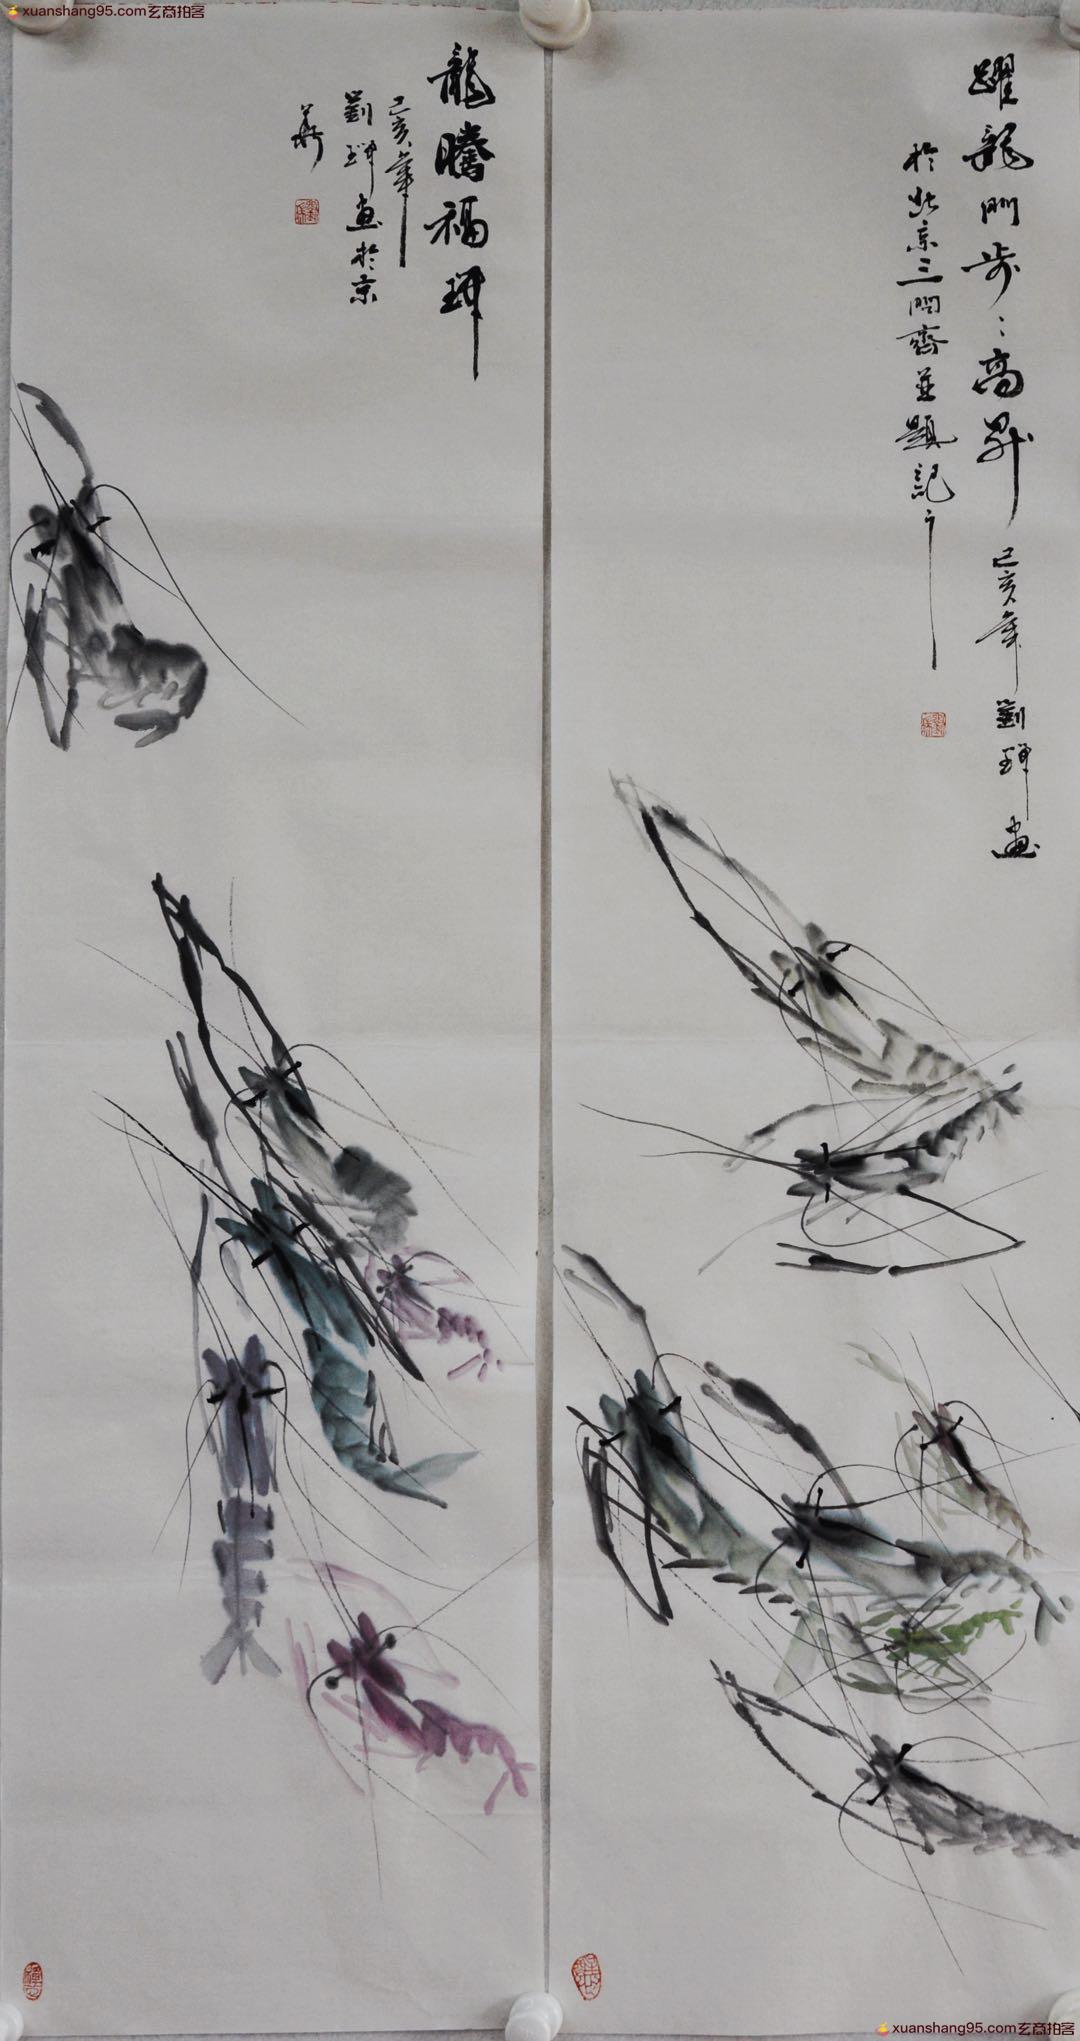 xuanshang95.com玄商拍客
躍龍門步〻高昇 己亥年 劉琿畫
於北京三問齋並題記
龍騰福琿
己亥年
劉琿畫於京
華
xuanshang95.com玄商拍客